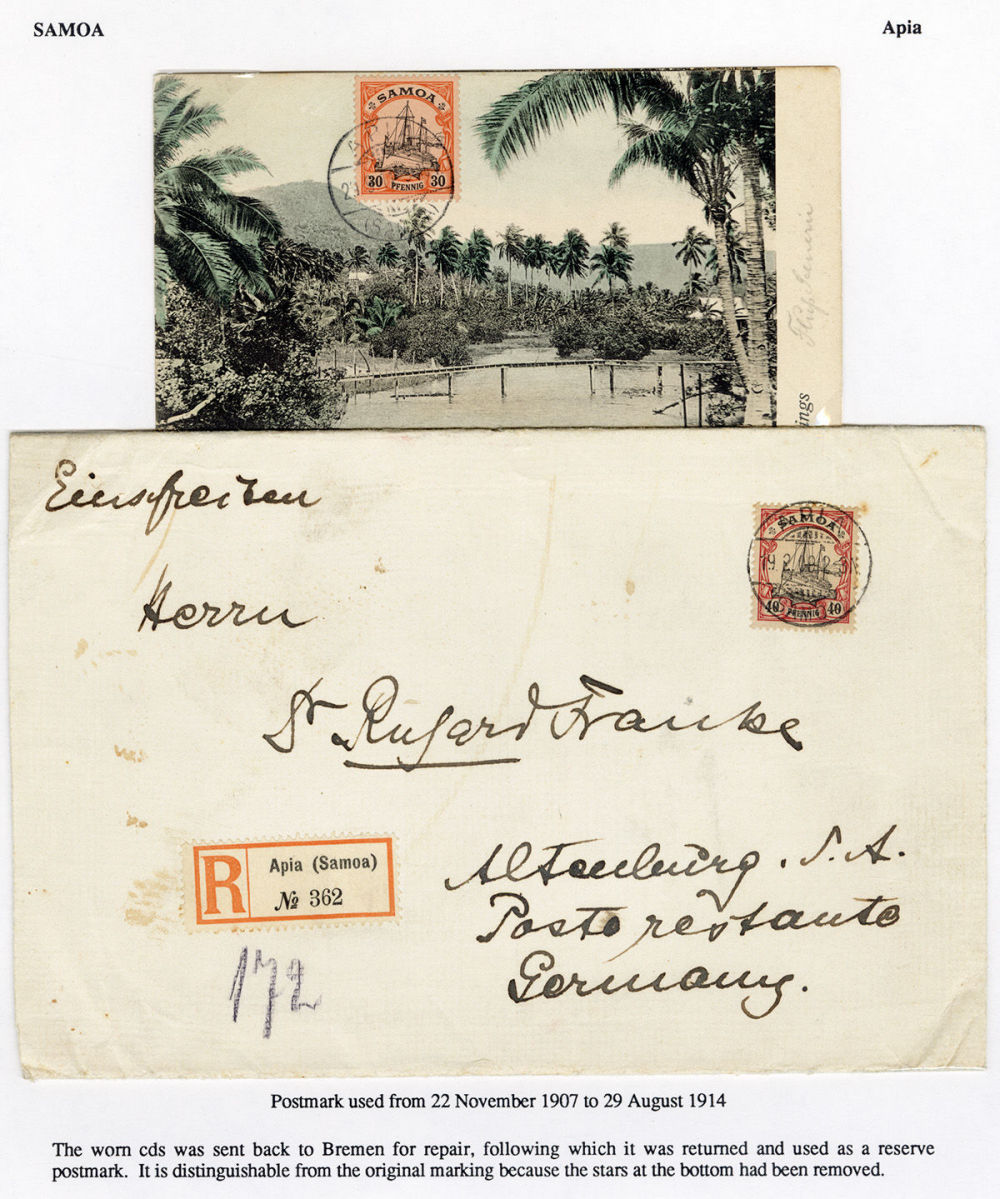 SAMOA
Apia
SAMOA
30 PFENNIG 30
ings
Einschreiben
Herrn
Dr Rugard Franke
Altenburg. S. A.
Poste restante
Germany.
SAMOA
40 PFENNIG 40
R
Apia (Samoa)
№ 362
172
Postmark used from 22 November 1907 to 29 August 1914
The worn cds was sent back to Bremen for repair, following which it was returned and used as a reserve
postmark. It is distinguishable from the original marking because the stars at the bottom had been removed.